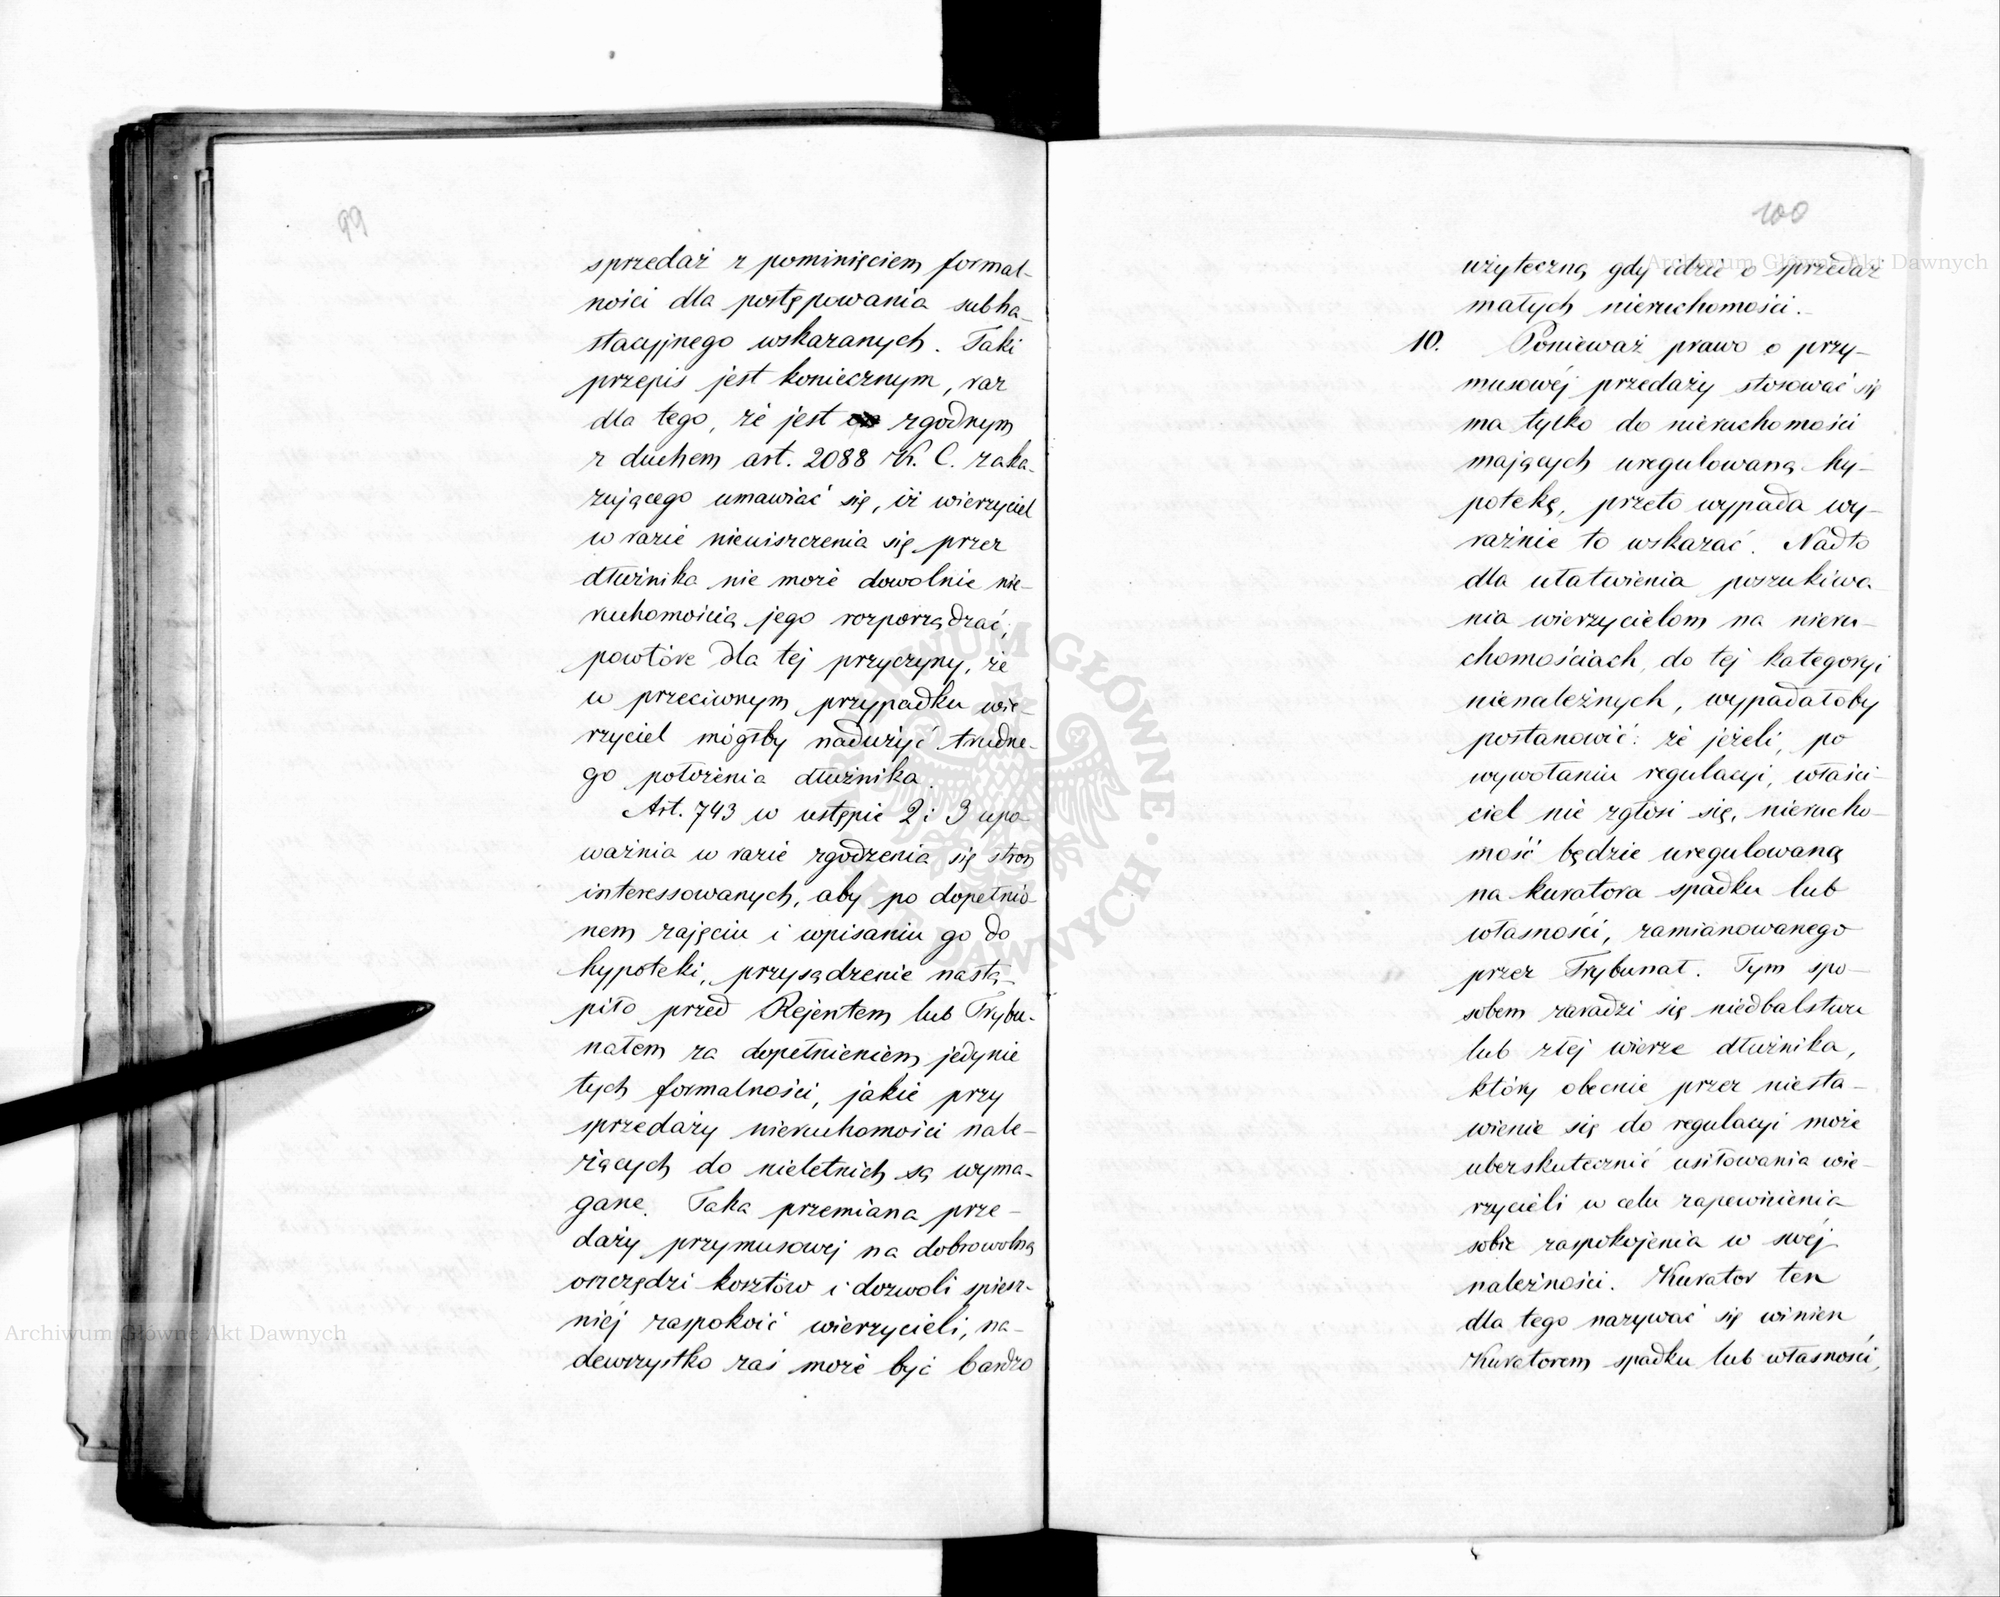 99
sprzedaż z pominięciem formal-
ności dla postępowania subha-
stacyjnego wskazanych. Taki
przepis jest koniecznym, raz
dla tego, że jest zgodnym
z duchem art. 2088 K. C. zaka-
zującego umawiać się, iż wierzyciel
w razie nieuiszczenia się przez
dłużnika nie może dowolnie nie-
ruchomością jego rozporządzać;
powtóre dla tej przyczyny, że
w przeciwnym przypadku wie-
rzyciel mógłby nadużyć trudne-
go położenia dłużnika.
Art. 743 w ustępie 2 i 3 upo-
ważnia w razie zgodzenia się stron
interessowanych, aby po dopełnio-
nem zajęciu i wpisaniu go do
hypoteki, przysądzenie nastą-
piło przed Rejentem lub Trybu-
nałem za dopełnieniem jedynie
tych formalności, jakie przy
sprzedaży nieruchomości nale-
żących do nieletnich są wyma-
gane. Taka przemiana prze-
daży przymusowej na dobrowolną
oszczędzi kosztów i dozwoli spiesz-
niéj zaspokoić wierzycieli, na-
dewszystko zaś może być bardzo
100
użyteczną gdy idzie o sprzedaż
małych nieruchomości.
10. Ponieważ prawo o przy-
musowéj przedaży stosować się
ma tylko do nieruchomości
mających uregulowaną hy-
potekę, przeto wypada wy-
raźnie to wskazać. Nadto
dla ułatwienia poszukiwa-
nia wierzycielom na nieru-
chomościach, do tej kategoryi
nienależnych, wypadałoby
postanowić: że jeżeli, po
wywołaniu regulacyi, właści-
ciel nie zgłosi się, nierucho-
mość będzie uregulowaną
na kuratora spadku lub
własności, zamianowanego
przez Trybunał. Tym spo-
sobem zaradzi się niedbalstwu
lub złéj wierze dłużnika,
który obecnie przez niesta-
wienie się do regulacyi może
ubezskutecznić usiłowania wie-
rzycieli w celu zapewnienia
sobie zaspokojenia w swéj
należności. Kurator ten
dla tego nazywać się winien
Kuratorem spadku lub własności,
Archiwum Główne Akt Dawnych
Archiwum Główne Akt Dawnych
ARCHIWUM GŁÓWNE · AKT DAWNYCH ·